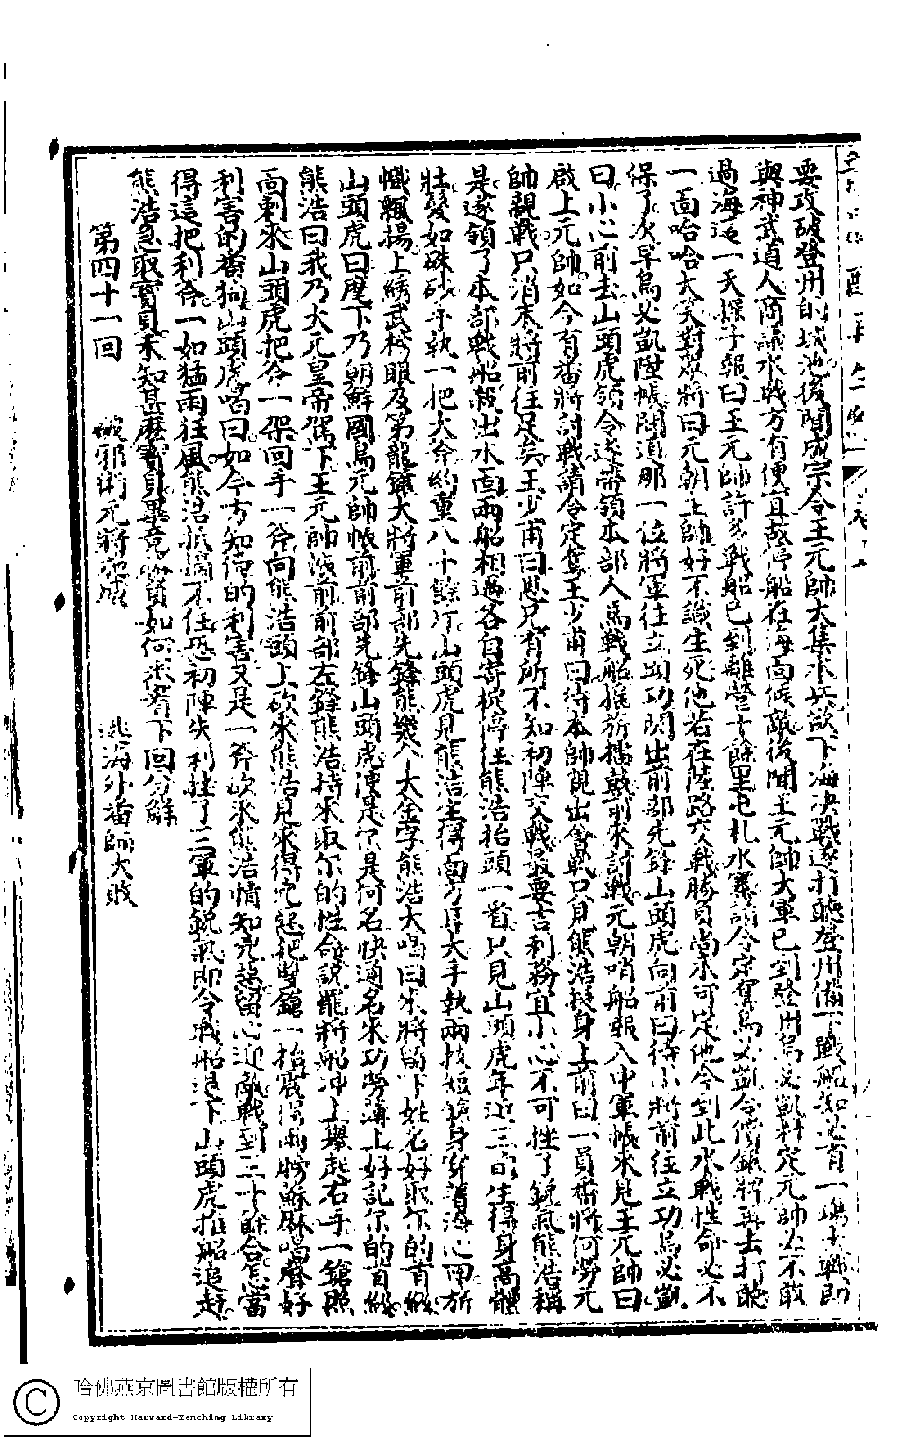 要攻破登州的城池後聞成宗令王元帥大集水兵欲下海決戰遂打聽登州備下戰船知必有一塲大戰即
與神武道人商議水戰方有便宜故停船在海面候敵後聞王元帥大軍已到登州烏必凱料定元帥必不敢
過海這一天探子報曰王元帥許多戰船已到離營十餘里屯札水寨請令定奪烏必凱令備銀牌再去打聽
一面哈哈大笑對眾將曰元朝主帥好不識生死他若在陸路交戰勝負尚未可定他今到此水戰性命必不
保了次早烏必凱陞帳問道那一位將軍往立頭功閃出前部先鋒山頭虎向前曰待小將前往立功烏必凱
曰小心前去山頭虎領令遂帶領本部人馬戰船搖旂擂鼓前來討戰元朝哨船報入中軍帳來見王元帥曰
啟上元帥如今有番將討戰請令定奪王少甫曰待本帥親出會戰只見熊浩挺身上前曰一員番將何勞元
帥親戰只消末將前往足矣王少甫曰恩兄有所不知初陣交戰最要吉利務宜小心不可挫了銳氣熊浩稱
是遂領了本部戰船殺出水面兩船相遇各自寄椗停住熊浩抬頭一看只見山頭虎年近三旬生得身高體
壯髮如硃砂手執一把大斧約重八十餘斤山頭虎見熊浩生得面方耳大手執兩枝短鎗身穿護海心甲旂
幟飄揚上綉武榜眼及第龍驤大將軍前部先鋒熊幾个大金字熊浩大喝曰來將留下姓名好取尔的首級
山頭虎曰麾下乃朝鮮國烏元帥帳前前部先鋒山頭虎便是尔是何名快通名來功勞薄上好記尔的首級
熊浩曰我乃大元皇帝駕下王元帥帳前前部左鋒熊浩特來取尔的性命說罷將船冲上舉起右手一鎗照
面刺來山頭虎把斧一架回手一斧向熊浩頭上砍來熊浩見來得兇起把雙鎗一抬震得兩膀酥麻喝聲好
利害的番狗山頭虎喝曰如今方知俺的利害又是一斧砍來熊浩情知兇惡留心迎敵戰到二十餘合怎當
得這把利斧一如猛雨狂風熊浩抵擋不住恐初陣失利挫了三軍的銳氣即令戰船退下山頭虎推船追赶
熊浩急取寶貝未知甚麼寶貝畢竟勝負如何來看下回分解
第四十一回 破邪術元將 逃海外番師大敗
哈佛燕京圖書館版權所有
Copyright Harvard-Yenching Library